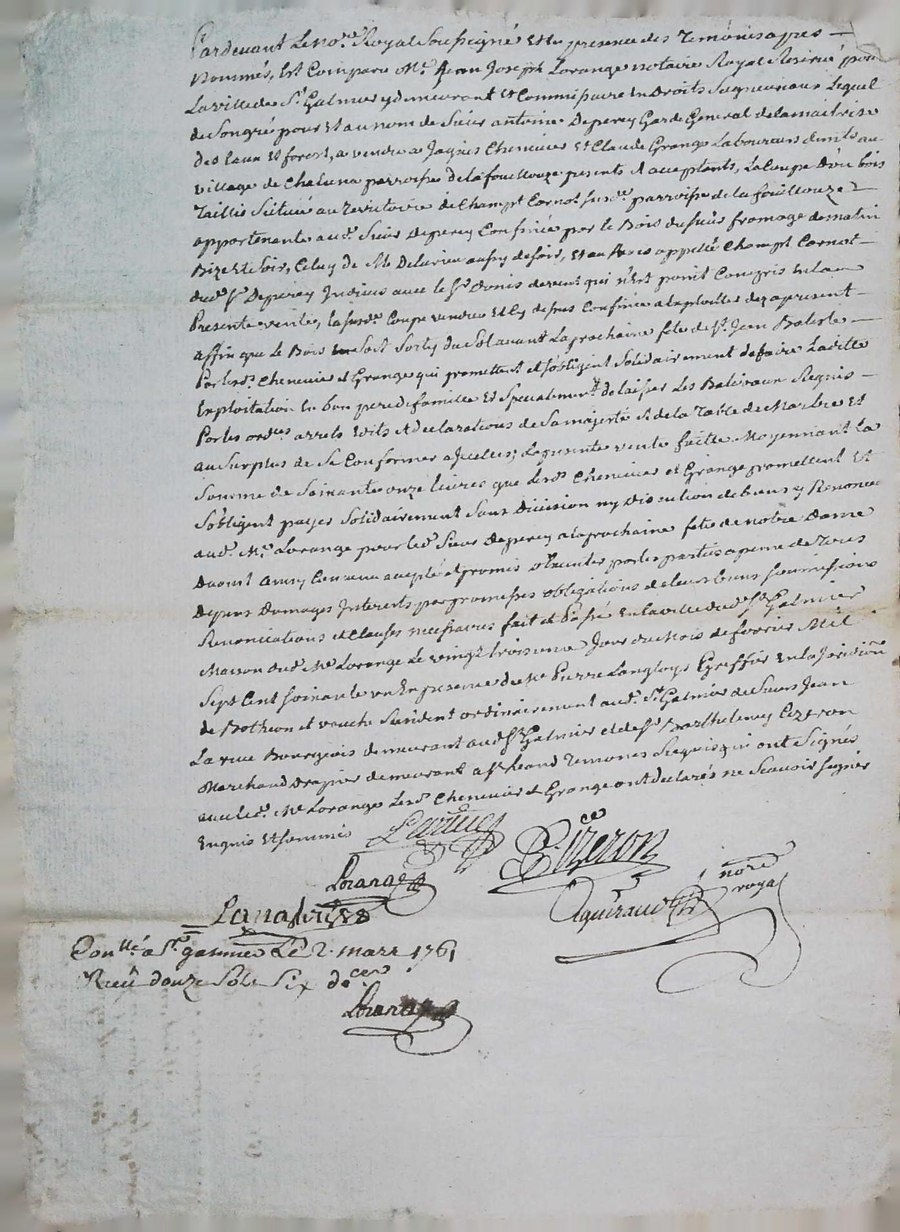 Pardevant Le no.re Royal Soussigné Et En presence des Temoins apres
Nommés, Est Comparu M.e Jean Joseph Lorange notaire Royal Reservé pour
La ville de S.t Galmier y demeurant Et Commissaire En Droits Seigneuriaux Lequel
de Son gré pour Et au nom de Sieur antoine Deperey Garde General de la maitrise
des Eaux Et forest, a vendu a Jaques Chenevier Et Claude Grange Laboureurs du
village de Chaluna parroisse de la fouillouze presents Et acceptants, La Coupe d'un bois
Taillis Situé au Territoire de Champt Cornot Susd.e parroisse de la fouillouze
appartenant aud. Sieur Deperey Confiné par le Bois du Sieur fromage de matin
Bize Et Soir, Celuy de M.e Delarieu aussy de Soir, Et au Bois appellé Champt Cornot
dud. S.r Deperey Indivis avec le S.r qui n'est point Compris En la
Presente vente, La Susd.e Coupe vendue Et Cy dessus Confinée a Exploiter dez apresent
affin que le Bois Soit Sorty du Sol avant La prochaine fête de S.t Jean Batiste
Par lesd. Chenevier et Grange qui promettent et s'obligent Solidairement de faire Laditte
Exploitation En bon pere de famille Et Specialement de laisser Les Baliveaux Requis
Par les ord.ces arrets Edits et declarations de Sa majesté et de la Table de Marbre Et
au Surplus de Se Conformer a Icelles; La presente vente faitte Moyennant La
Somme de Soixante onze Livres que Lesd. Chenevier et Grange promettent Et
S'obligent payer Solidairement Sans Division ny Discution de biens y Renoncer
aud. M.e Lorange pour led. Sieur Deperey a la prochaine fête de notre Dame
D'aout Ainsy Convenu accepté et promis observer par les parties a peine de Tous
Depens Domages Interets par promesses obligations de leurs biens Soumissions
Renonciations et Clauses necessaires fait et Passé En la ville dud. S.t Galmier
Maison dud. M.e Lorange Le vingt troisieme Jour du Mois de fevrier Mil
Sept Cent Soixante un En presence de M.e Pierre Langloys Greffier En la Jurid.on
de Bothéon et veauche Resident ordinairement aud. S.t Galmier de Sieur Jean
La rive Bourgeois demeurant aud. S.t Galmier et de S.r Barthelemy Cizeron
Marchand Drapier demeurant a S.t heand Temoins Requis qui ont Signés
avec led. M.e Lorange Lesd. Chenevier et Grange ont declarés ne Scavoir Signer
Enquis Et Sommés
Larive
B. Cizeron
Lorange
not.re
royal
Con.lé a S.t galmier Le 2. mars 1761
Recu douze Sols Six d.
Lorange